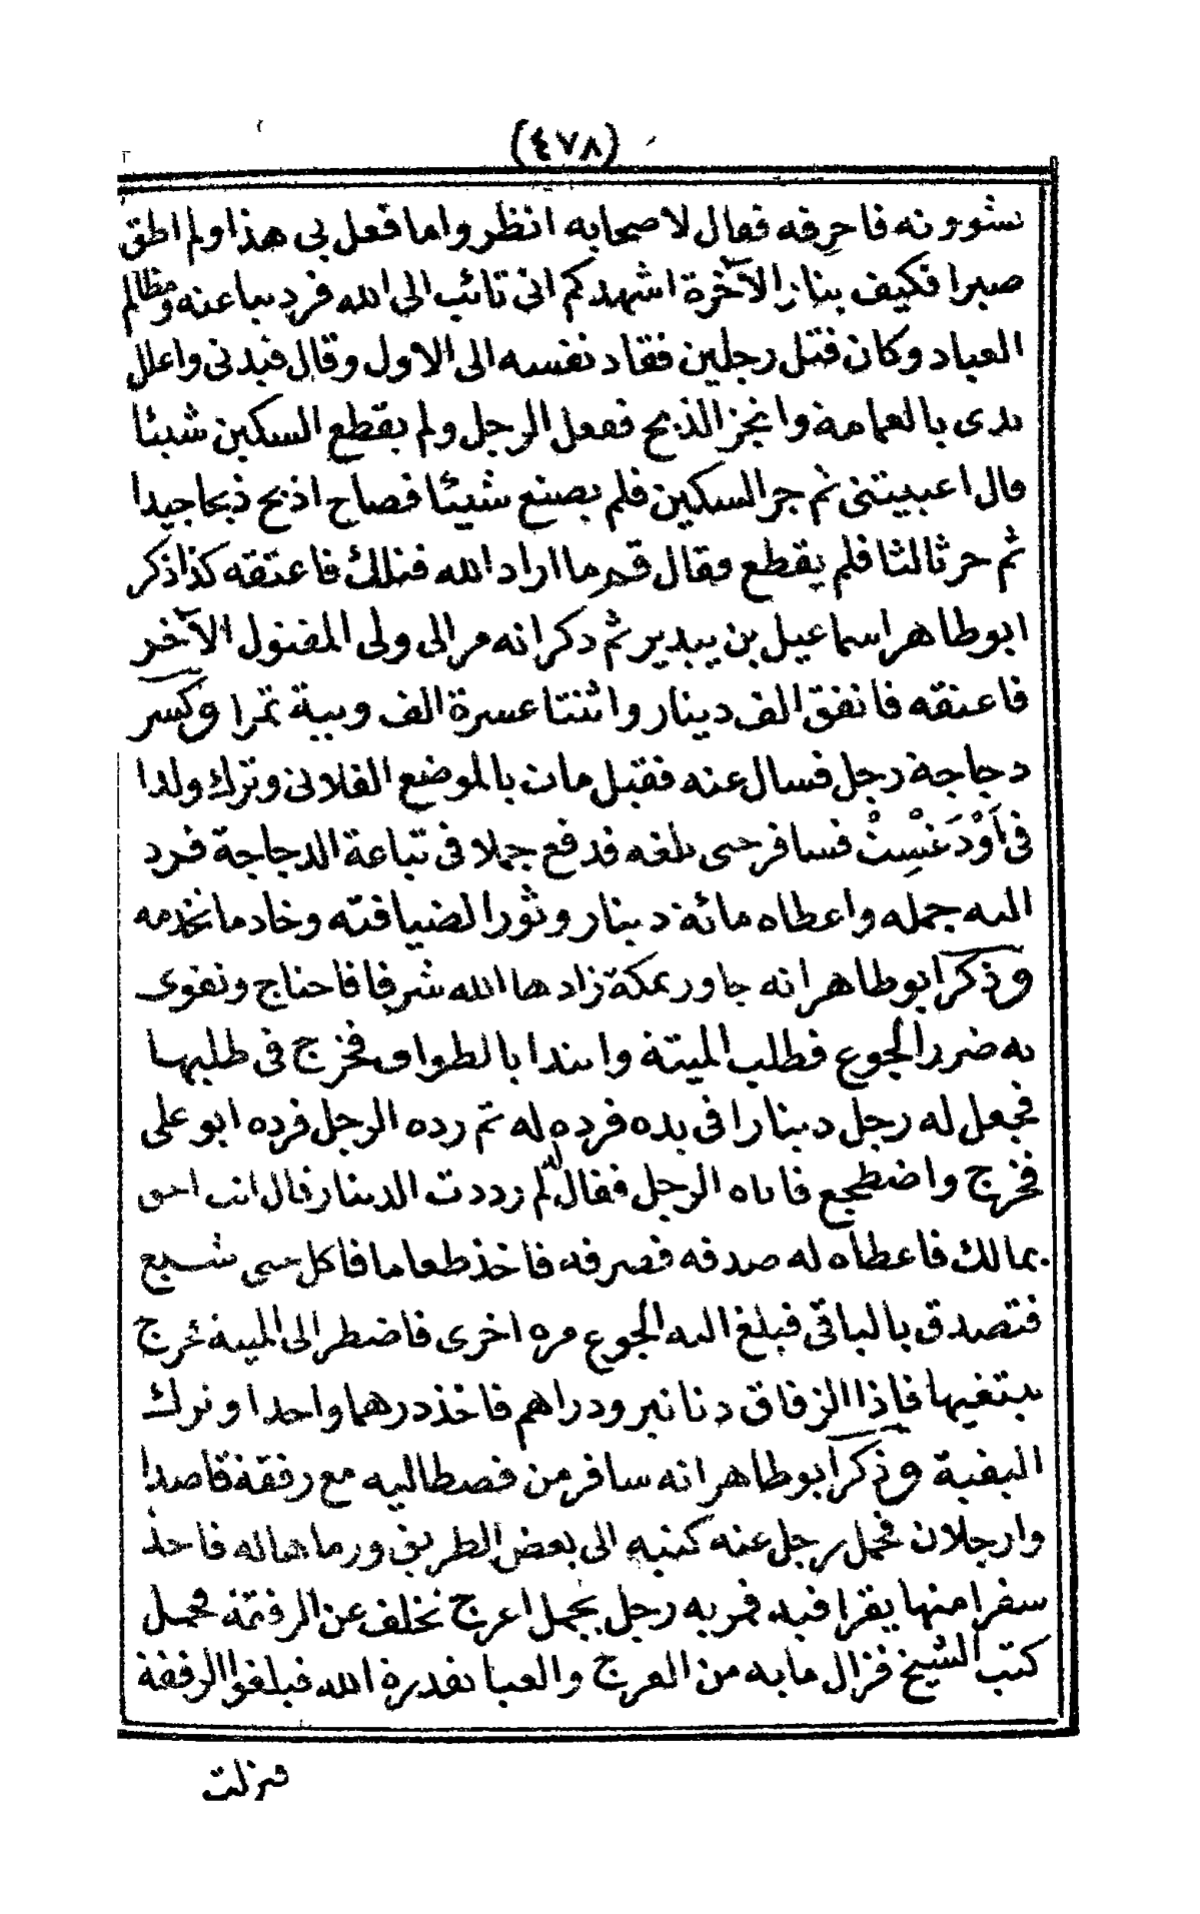 (٤٧٨)
يشوونه فاحرقه فقال لاصحابه انظروا ما فعل بي هذا ولم اطق
صبرا فكيف بنار الآخرة اشهدكم اني تائب الى الله فرد تباعته ومظالم
العباد وكان قتل رجلين فقاد نفسه الى الاول وقال قيدني واغلل
يدي بالعمامة وانجز الذبح ففعل الرجل ولم يقطع السكين شيئا
قال اعييتني ثم جر السكين فلم يصنع شيئا فصاح اذبح ذبحا جيدا
ثم جر ثالثا فلم يقطع وقال قم ما اراد الله قتلك فاعتقه كذا ذكر
ابو طاهر اسماعيل بن ييدير ثم ذكر انه مر الى ولى المقتول الآخر
فاعتقه فانفق الف دينار واثنتا عسرة الف ويبة تمرا وكسر
دجاجة رجل فسال عنه فقيل مات بالموضع الفلاني وترك ولدا
في أَوْدَغِسْتْ فسافر حتى بلغه فدفع جملا في تباعة الدجاجة فرد
اليه جمله واعطاه مائة دينار وثورا لضيافته وخادما تخدمه
وذكر ابو طاهر انه جاور بمكة زادها الله شرفا فاحتاج وتقوى
به ضرر الجوع فطلب الميتة وابتدا بالطواف فخرج في طلبها
فجعل له رجل دينارا في يده فرده له ثم رده الرجل فرده ابو علي
فخرج واضطجع فاتاه الرجل فقال له لم رددت الدينار قال انت احق
بمالك فاعطاه له صدقة فصرفه فاخذ طعاما فاكل حتى شبع
فتصدق بالباقي فبلغ اليه الجوع مرة اخرى فاضطر الى الميتة فخرج
يبتغيها فاذا الزقاق دنانير ودراهم فاخذ درهما واحدا وترك
البقية وذكر ابو طاهر انه سافر من قصطاليه مع رفقة قاصدا
وارجلان فحمل رجل عنه كتبه الى بعض الطريق ورماها له فاخذ
سفرا منها يقرا فيه فمر به رجل بجمل اعرج تخلف عن الرفقة فحمل
كتب الشيخ فزال ما به من العرج والعيا بقدرة الله فبلغوا الرفقة
فنزلت